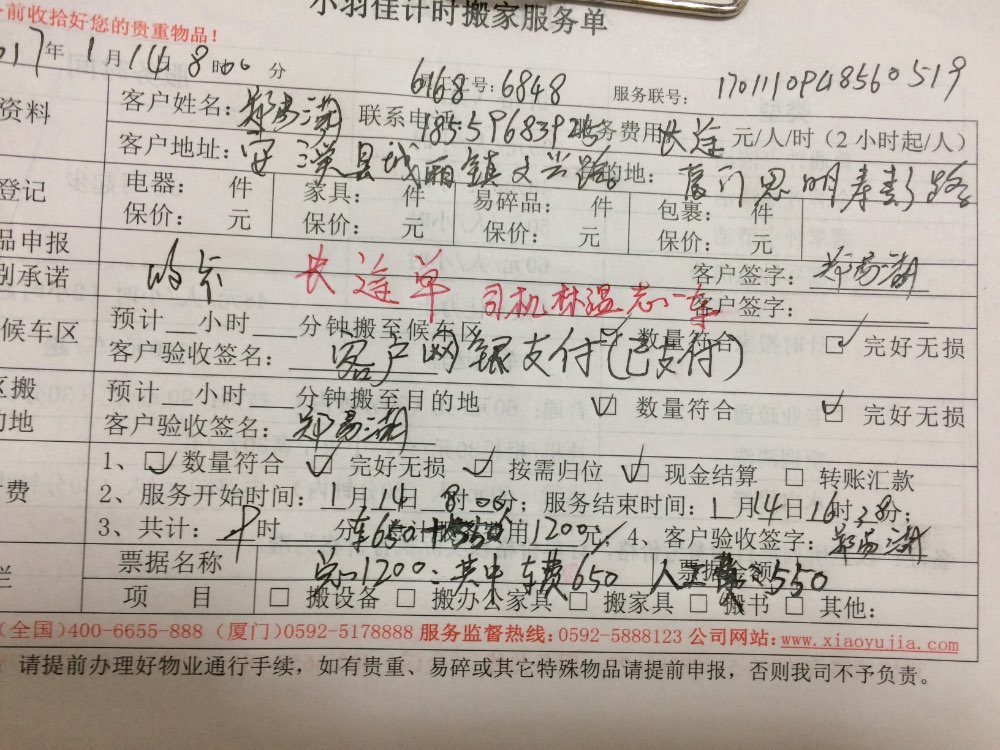 前收拾好您的贵重物品!
小羽佳计时搬家服务单
017年1月14日8时00分 6168 工号:6848 服务联号: 170111094856 0519
资料 客户姓名: 联系电 务费用 长途 元/人/时(2小时起/人)
客户地址: 安溪县城厢镇文兴路 的地: 厦门思明寿彭路
登记 电器: 件 家具: 件 易碎品: 件 包裹: 件
保价: 元 保价: 元 保价: 元 保价: 元
品申报 客户签字:
别承诺 长途单 司机林温志一车 客户签字:
候车区 预计__小时____分钟搬至候车区 数量符合 完好无损
客户验收签名: 客户网银支付(已支付)
区搬 预计__小时____分钟搬至目的地 数量符合 完好无损
的地 客户验收签名:
1、 数量符合 完好无损 按需归位 现金结算 转账汇款
费 2、服务开始时间: 1月14日8时00分; 服务结束时间: 1月14日16时28分;
3、共计: 时 分 车650+ 用1200元; 4、客户验收签字:
票据名称 票据金额
1200: 其中车费650 人工费550
栏 项 目 搬设备 搬办公家具 搬家具 搬书 其他:
(全国)400-6655-888 (厦门)0592-5178888 服务监督热线:0592-5888123 公司网站:www.xiaoyujia.com
请提前办理好物业通行手续,如有贵重、易碎或其它特殊物品请提前申报,否则我司不予负责。